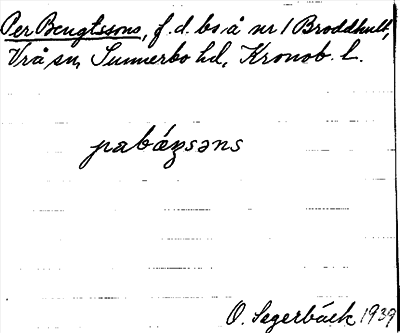 Per Bengtssons, f.d. bs. å nr 1 Broddhult,
Vrå sn, Sunnerbo hd, Kronob. l.
pabáŋsəns
O. Segerbäck 1939